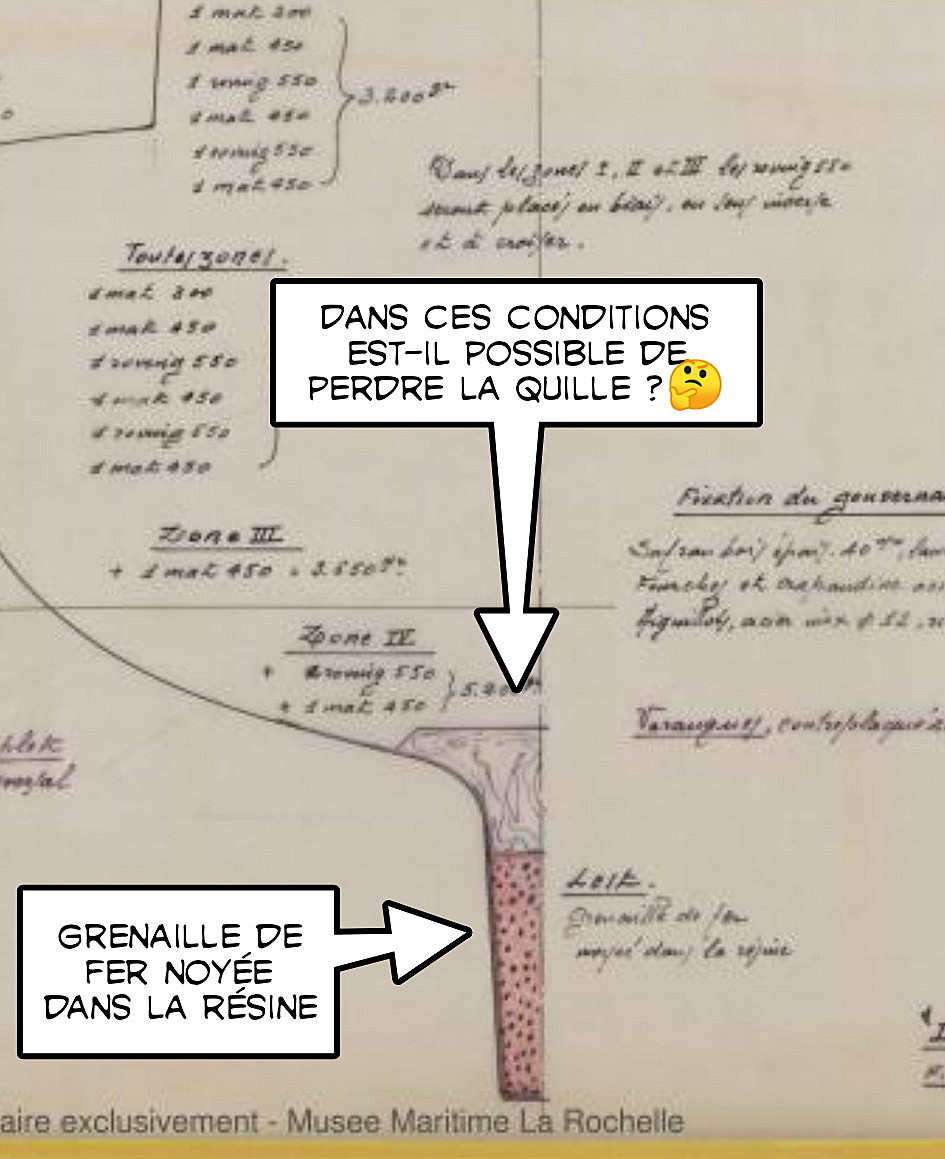 1 mat 300
1 mat 450
1 roving 550
1 mat 450
1 roving 550
1 mat 450
3.200 gr
Dans les zones I, II et III les roving 550
seront placés en biais, en sens inverse
et à croiser.
Toutes zones.
1 mat 300
1 mat 450
1 roving 550
1 mat 450
1 roving 550
1 mat 450
DANS CES CONDITIONS
EST-IL POSSIBLE DE
PERDRE LA QUILLE ? 🤔
Fixation du gouverna
Safran bois épais. 40
Zone III
+ 1 mat 450 = 3.650 gr.
Zone IV
+ roving 550
+ 1 mat 450
Varangues, contreplaqué
Lest.
Grenaille de fer
noyée dans la résine
GRENAILLE DE
FER NOYÉE
DANS LA RÉSINE
aire exclusivement - Musee Maritime La Rochelle